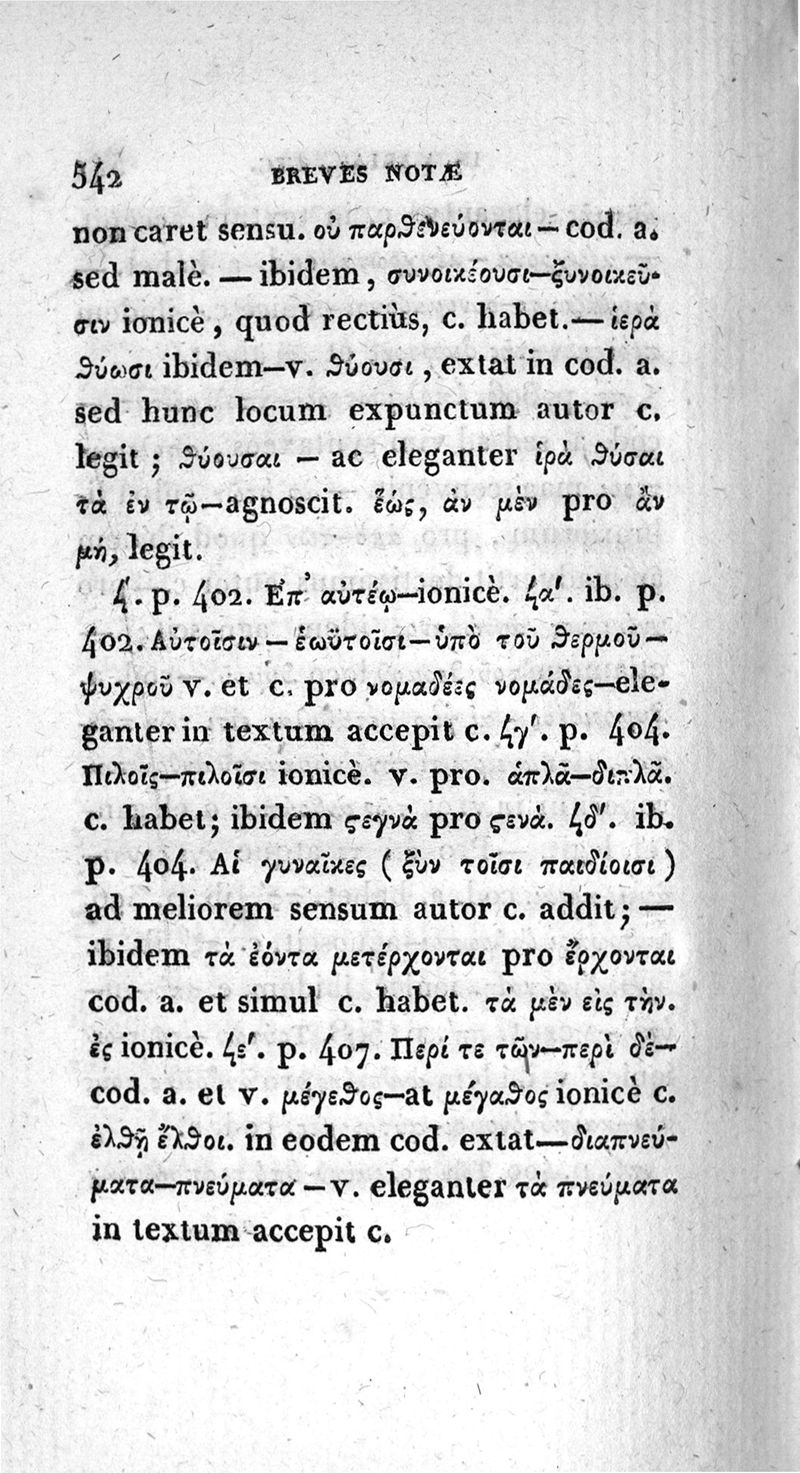 542 BREVES NOTÆ
non caret sensu. οὐ παρθενεύονται — cod. a.
sed malè. — ibidem, συνοικέουσι—ξυνοικεῦ-
σιν ionicè, quod rectiùs, c. habet. — ἱερὰ
θύωσι ibidem—v. θύουσι, extat in cod. a.
sed hunc locum expunctum autor c.
legit; θύουσαι — ac eleganter ἱρὰ θύσαι
τὰ ἐν τῷ—agnoscit. ἕώς, ἀν μὲν pro ἂν
μή, legit.
ϟ. p. 402. Ἐπ’ αὐτέῳ—ionicè. ϟα′. ib. p.
402. Αὐτοῖσιν — ἑωϋτοῖσι — ὑπὸ τοῦ θερμοῦ —
ψυχροῦ v. et c. pro νομαδέες νομάδες—ele-
ganter in textum accepit c. ϟγ′. p. 404.
Πιλοῖς—πιλοῖσι ionicè. v. pro. ἁπλᾶ—διπλᾶ.
c. habet; ibidem ϛεγνὰ pro ϛενά. ϟδ′. ib.
p. 404. Αἱ γυναῖκες ( ξὺν τοῖσι παιδίοισι )
ad meliorem sensum autor c. addit; —
ibidem τὰ ἐόντα μετέρχονται pro ἔρχονται
cod. a. et simul c. habet. τὰ μὲν εἰς τὴν.
ἐς ionicè. ϟε′. p. 407. Περί τε τῶν—περὶ δὲ—
cod. a. et v. μέγεθος—at μέγαθος ionicè c.
ἐλθῇ ἔλθοι. in eodem cod. extat—διαπνεύ-
ματα—πνεύματα — v. eleganter τὰ πνεύματα
in textum accepit c.